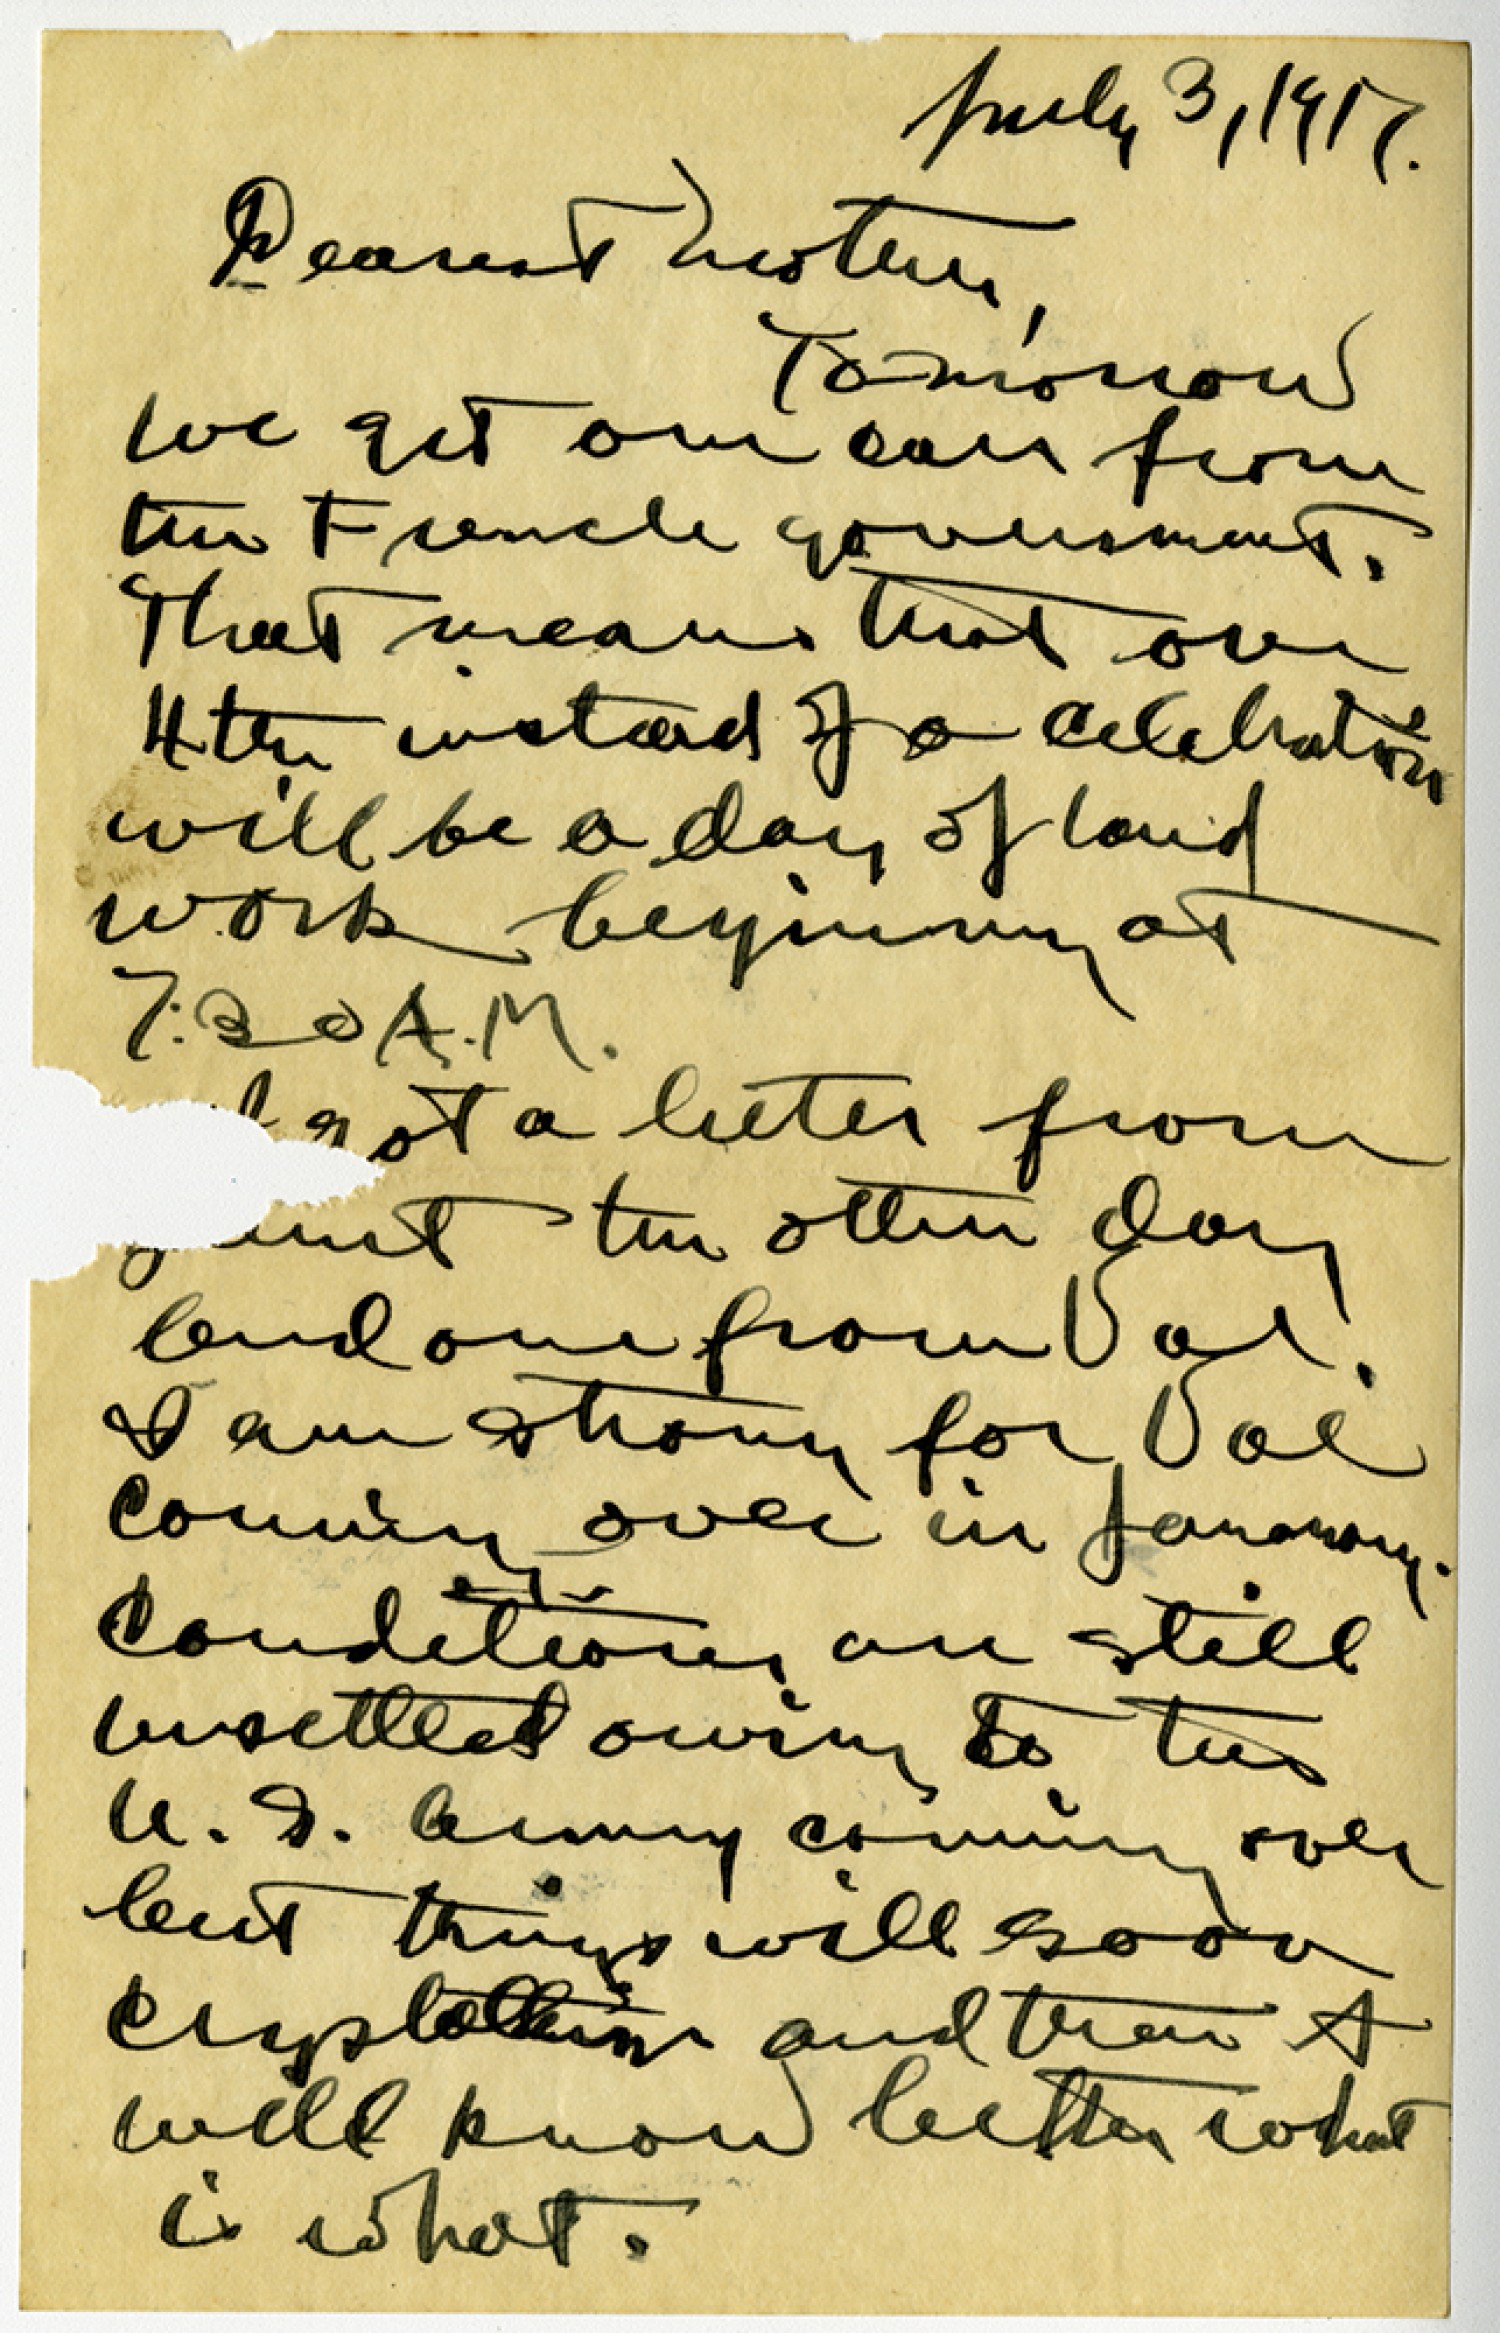 July 3, 1917.
Dearest Mother,
Tomorrow
we get our cars from
the French government.
That means that our
4th instead of a celebration
will be a day of hard
work beginning at
7:30 A.M.
I got a letter from
the other day
and one from Val.
I am strong for Val
coming over in January.
Conditions are still
unsettled owing to the
U.S. Army coming over
but things will soon
crystallize and then I
will know better what
is what.